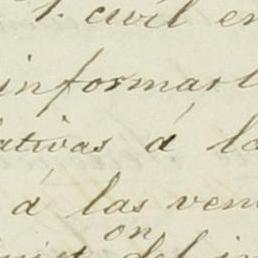 civil en
informarl
ativas á la
á las ven
on
del in